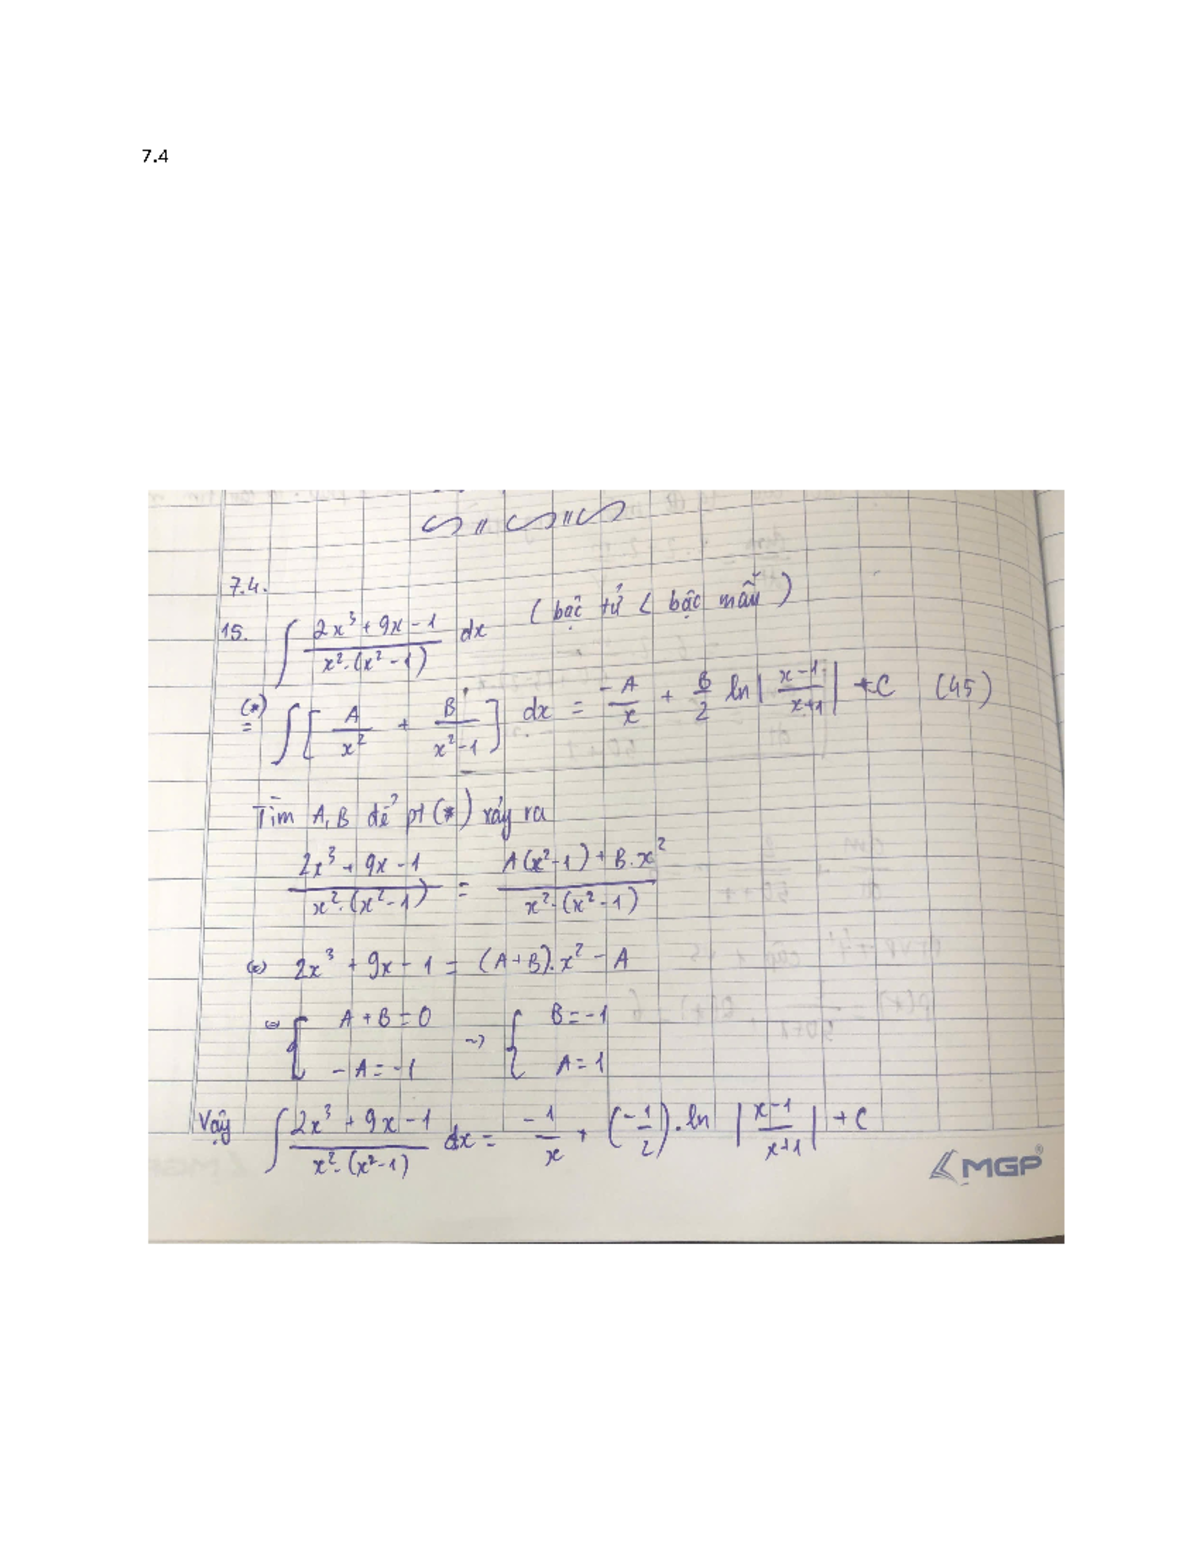 7.4
7.4.
15. ∫ (2x³ + 9x - 1)/(x².(x² - 1)) dx (bậc tử < bậc mẫu)
(*) = ∫ [A/x² + B/(x² - 1)] dx = -A/x + B/2 ln|(x-1)/(x+1)| + C (45)
Tìm A, B để pt (*) xảy ra
(2x³ + 9x - 1)/(x².(x² - 1)) = (A(x² - 1) + B.x²)/(x².(x² - 1))
(*) 2x³ + 9x - 1 = (A+B).x² - A
⇔ { A + B = 0 ~> { B = -1
- A = -1 A = 1
Vậy ∫ (2x³ + 9x - 1)/(x².(x² - 1)) dx = -1/x + (-1/2).ln |(x-1)/(x+1)| + C
MGP®